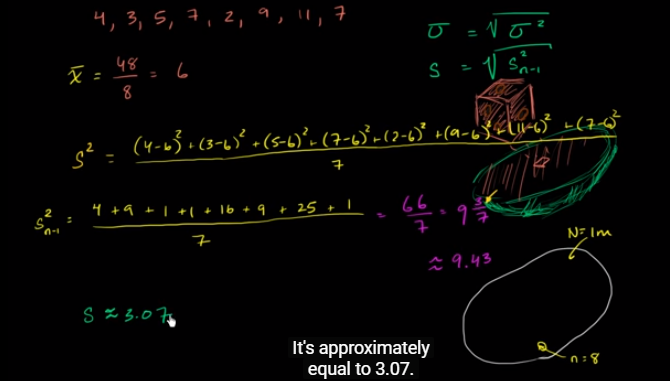 4, 3, 5, 7, 2, 9, 11, 7
σ = √σ²
x̄ = 48/8 = 6
S = √S²ₙ₋₁
S² = ((4-6)² + (3-6)² + (5-6)² + (7-6)² + (2-6)² + (9-6)² + (11-6)² + (7-6)²)/7
S²ₙ₋₁ = (4 + 9 + 1 + 1 + 16 + 9 + 25 + 1)/7 = 66/7 = 9 3/7
N = 1m
≈ 9.43
S ≈ 3.07
n = 8
It's approximately
equal to 3.07.